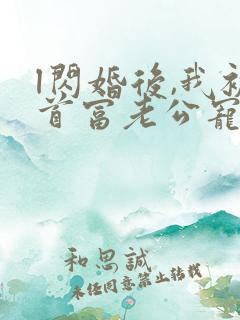 1閃婚後,我被
首富老公寵
和思誠
未任同意禁止转载